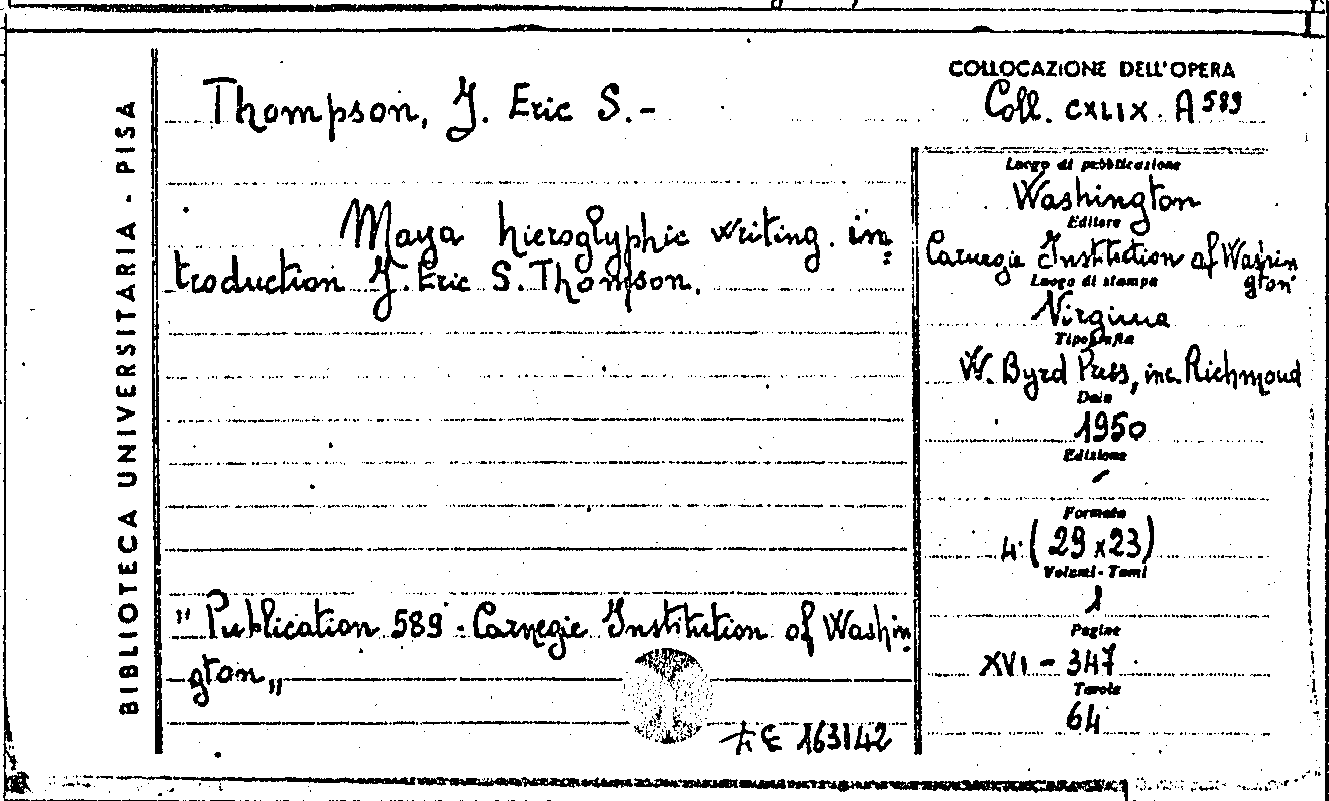 BIBLIOTECA UNIVERSITARIA - PISA
Thompson, J. Eric S.-
Maya hieroglyphic writing. in:
troduction J. Eric S. Thompson.
" Publication 589 - Carnegie Institution of Washin
gton "
163142
COLLOCAZIONE DELL'OPERA
Coll. CXLIX. A 589
Luogo di pubblicazione
Washington
Editore
Carnegie Institution of Washin
gton
Luogo di stampa
Virginia
Tipografia
W. Byrd Press, inc. Richmond
Data
1950
Edizione
-
Formato
4° (29 x 23)
Volumi - Tomi
1
Pagine
XVI - 347
Tavole
64